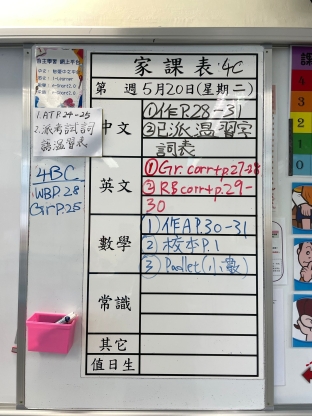 自主學習 網上平台
1. ATP.24-25
2. 派考試詞
語溫習表
4BC
WBP.28
GrP.25
家課表 4C
第 週 5月20日(星期二)
中文
①作P.28-31
②已派溫習字
詞表
英文
① Gr. corr+p.27-28
② RB corr+p.29-
30
數學
① 作AP.30-31
② 校本P.1
③ Padlet(小數)
常識
其它
值日生
課
4
3
2